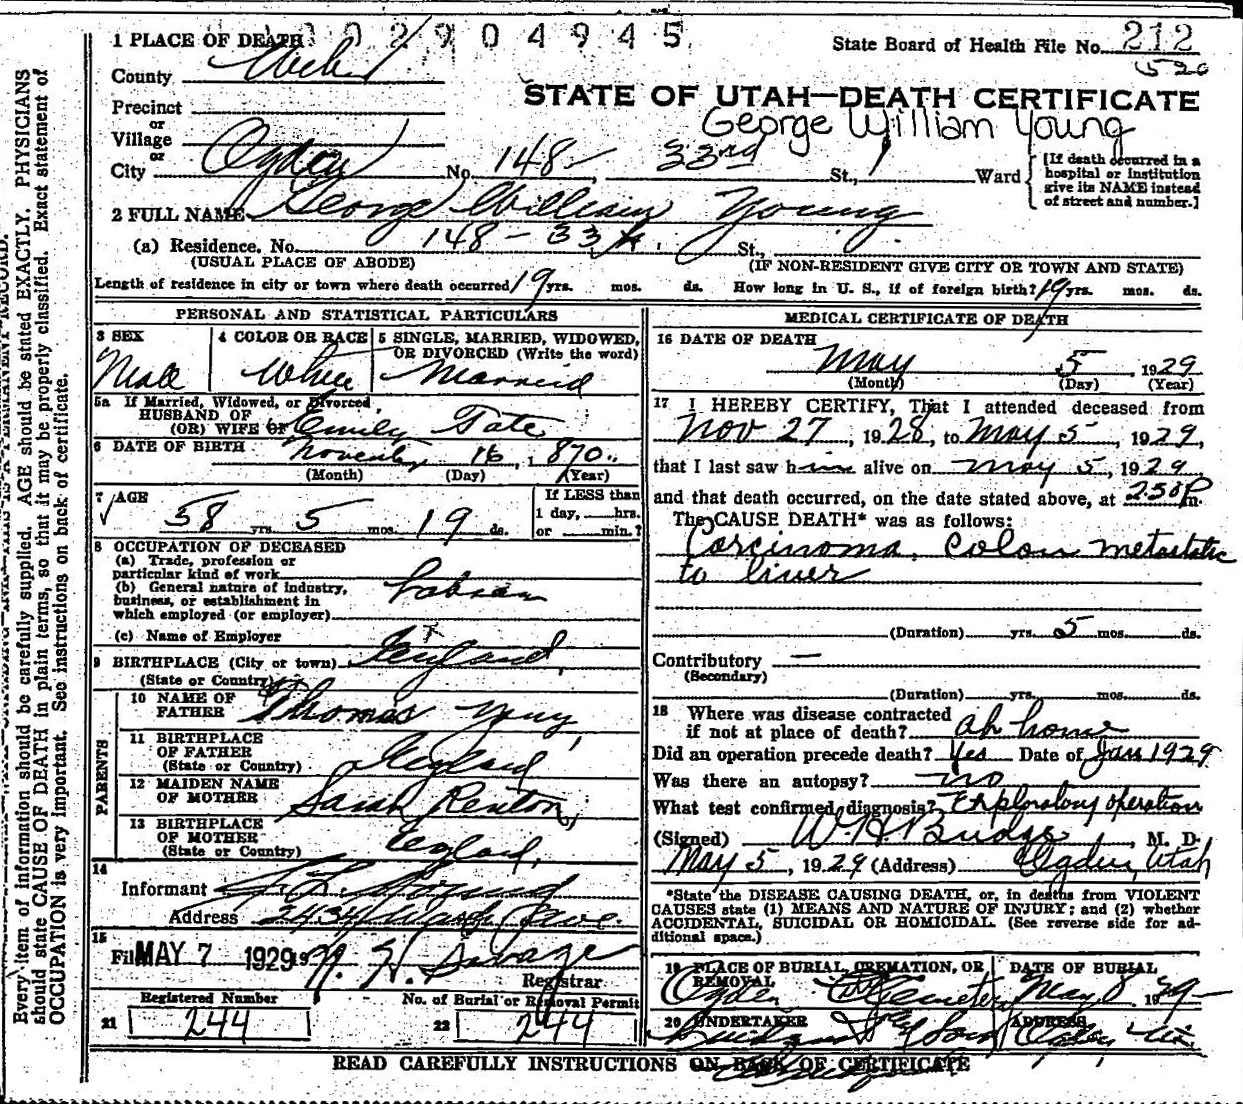 002904945
1 PLACE OF DEATH
State Board of Health File No. 212
520
County Weber
STATE OF UTAH—DEATH CERTIFICATE
George William Young
Precinct
or
Village
or
City Ogden No. 148 - 33rd St., Ward
[If death occurred in a
hospital or institution
give its NAME instead
of street and number.]
2 FULL NAME George William Young
(a) Residence. No. 148 - 33 St.,
(USUAL PLACE OF ABODE) (IF NON-RESIDENT GIVE CITY OR TOWN AND STATE)
Length of residence in city or town where death occurred 19 yrs. mos. ds. How long in U. S., if of foreign birth? 19 yrs. mos. ds.
PERSONAL AND STATISTICAL PARTICULARS
3 SEX 4 COLOR OR RACE 5 SINGLE, MARRIED, WIDOWED,
OR DIVORCED (Write the word)
Male White Married
5a If Married, Widowed, or Divorced
HUSBAND OF
(OR) WIFE OF Emily Tate
6 DATE OF BIRTH November 16, 1870
(Month) (Day) (Year)
7 AGE
58 yrs. 5 mos. 19 ds.
If LESS than
1 day, hrs.
or min.?
8 OCCUPATION OF DECEASED
(a) Trade, profession or
particular kind of work
(b) General nature of industry,
business, or establishment in
which employed (or employer)
(c) Name of Employer
9 BIRTHPLACE (City or town) England
(State or Country)
PARENTS
10 NAME OF
FATHER Thomas Young
11 BIRTHPLACE
OF FATHER England
(State or Country)
12 MAIDEN NAME
OF MOTHER Sarah Renton
13 BIRTHPLACE
OF MOTHER England
(State or Country)
14
Informant
Address 2434 Ave.
15
Filed MAY 7 1929 19
Registrar
Registered Number No. of Burial or Removal Permit
21 244 22 244
MEDICAL CERTIFICATE OF DEATH
16 DATE OF DEATH
May 5 1929
(Month) (Day) (Year)
17 I HEREBY CERTIFY, That I attended deceased from
Nov 27, 1928, to May 5, 1929,
that I last saw him alive on May 5, 1929
and that death occurred, on the date stated above, at 2:50 P m.
The CAUSE DEATH* was as follows:
Carcinoma, colon metastatic
to liver
(Duration) yrs. 5 mos. ds.
Contributory —
(Secondary)
(Duration) yrs. mos. ds.
18 Where was disease contracted
if not at place of death? at home
Did an operation precede death? Yes Date of Jan 1929
Was there an autopsy? no
What test confirmed diagnosis? Exploratory operation
(Signed) W.H. Budge, M. D.
May 5, 1929 (Address) Ogden, Utah
*State the DISEASE CAUSING DEATH, or, in deaths from VIOLENT
CAUSES state (1) MEANS AND NATURE OF INJURY; and (2) whether
ACCIDENTAL, SUICIDAL OR HOMICIDAL. (See reverse side for ad-
ditional space.)
19 PLACE OF BURIAL, CREMATION, OR
REMOVAL
DATE OF BURIAL
Ogden City Cemetery May 8 1929
20 UNDERTAKER ADDRESS
& Son Ogden, Ut.
READ CAREFULLY INSTRUCTIONS ON BACK OF CERTIFICATE
Every item of information should be carefully supplied. AGE should be stated EXACTLY. PHYSICIANS
should state CAUSE OF DEATH in plain terms, so that it may be properly classified. Exact statement of
OCCUPATION is very important. See instructions on back of certificate.